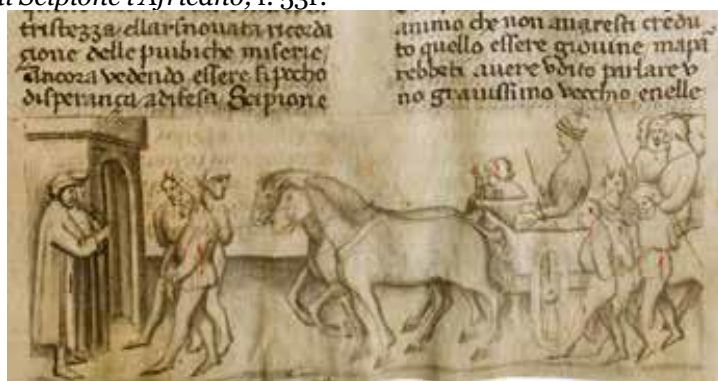 di Scipione l'Africano, f. 53r.
tristezza ella rinovata ricorda
tione delle pubiche miserie
Ancora vedendo essere si pocho
disperança adifesa Scipione
animo che non avaresti credu
to quello essere giovine ma pa
rebbeti avere udito parlare v
no gravissimo vecchio enelle